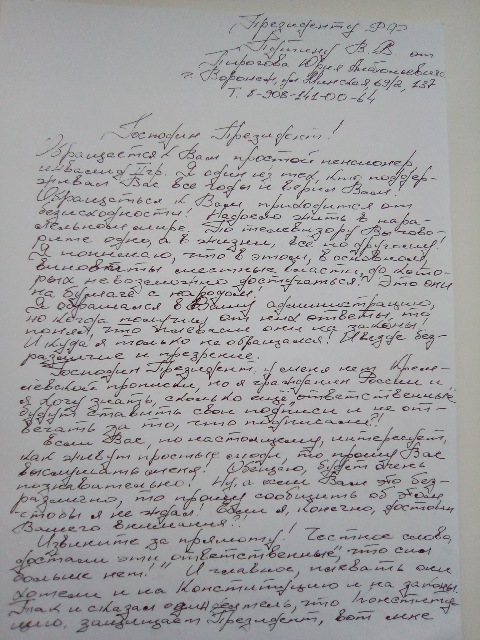 Президенту РФ
Путину В.В от
Пирогова Юрия Антоновича
г. Воронеж, ул Минская, 69/2, 137
т. 8-908-141-00-64
Господин Президент!
Обращается к Вам простой пенсионер,
инвалид II гр. Я один из тех, кто поддер-
живал Вас все годы и верил Вам!
Обращаться к Вам приходится от
безисходности! Надоело жить в пара-
лельном мире. По телевизору Вы гово-
рите одно, а в жизни, всё по другому!
Я понимаю, что в этом, в основном,
виноваты местные власти, до кото-
рых невозможно достучаться! Это они
на бумаге с народом.
Я обращался в Вашу администрацию,
но когда получил от них ответы, то
понял, что плевали они на законы!
И куда я только не обращался! Везде без-
различие и презрение.
Господин Президент, у меня нет Крем-
лёвской прописки, но я гражданин России и
я хочу знать, сколько ещё "ответственные"
будут ставить свои подписи и не от-
вечать за то, что подписали?!
Если Вас, по настоящему, интересует,
как живут простые люди, то прошу Вас
выслушать меня! Обещаю, будет очень
познавательно! Ну, а если Вам это без-
различно, то прошу сообщить об этом,
чтобы я не ждал! Если я, конечно, достоин
Вашего внимания?!
Извините за прямоту! Честное слово,
достали эти "ответственные", что сил
больше нет!" И главное, плевать они
хотели и на Конституцию и на законы.
Так и сказал один деятель, что Конститу-
цию, защищает Президент, вот мне